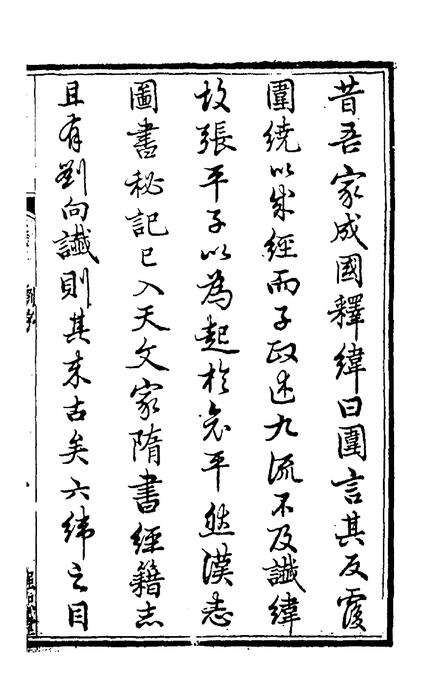 昔吾家成國釋緯曰圍言其反覆
圍繞以成經而子政述九流不及讖緯
故張平子以為起於哀平然漢志
圖書秘記已入天文家隋書經籍志
且有劉向讖則其來古矣六緯之目